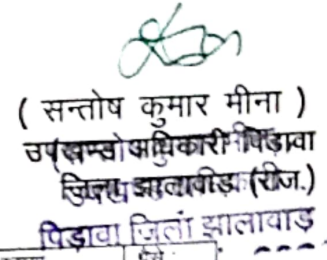 ( सन्तोष कुमार मीना )
उपखण्ड अधिकारी पिड़ावा
जिला झालावाड़ (राज.)
पिड़ावा जिला झालावाड़